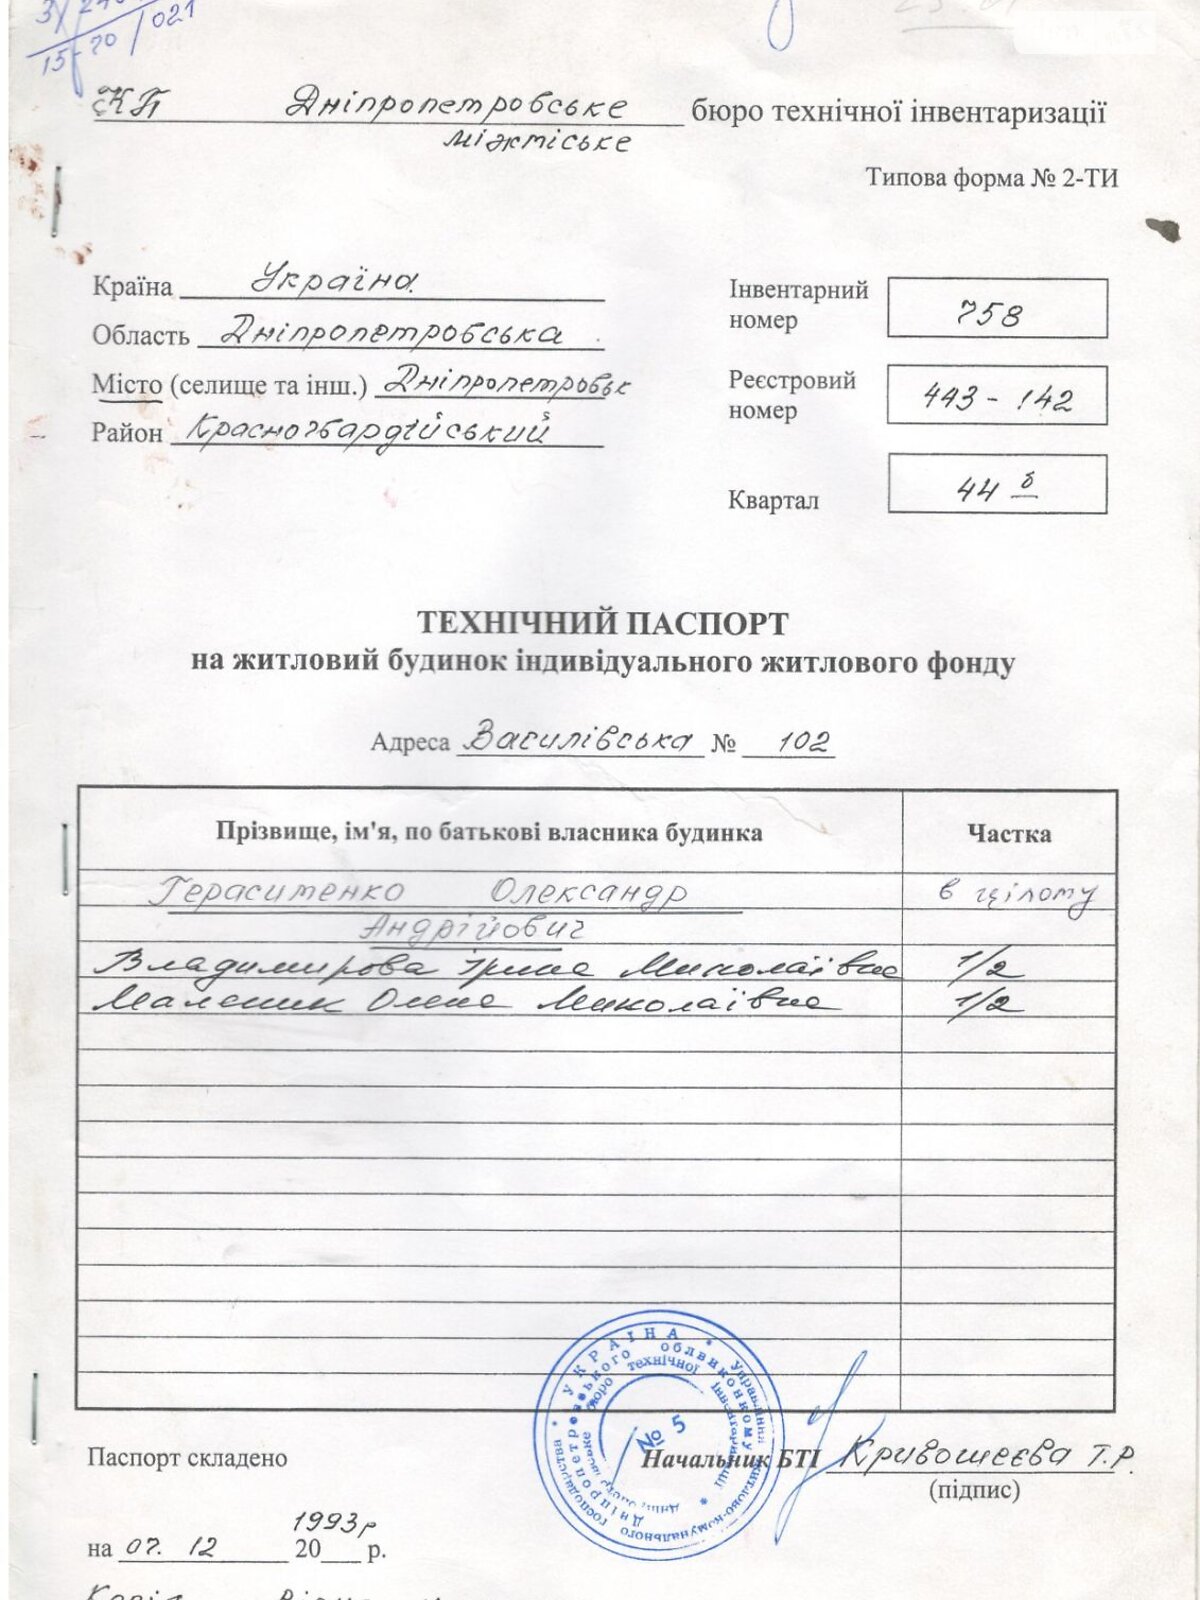 15-20/021
СКП Дніпропетровське бюро технічної інвентаризації
міжміське
Типова форма № 2-ТИ
Країна Україна
Область Дніпропетровська
Місто (селище та інш.) Дніпропетровськ
Район Красногвардійський
Інвентарний номер 758
Реєстровий номер 443-142
Квартал 44 б
ТЕХНІЧНИЙ ПАСПОРТ
на житловий будинок індивідуального житлового фонду
Адреса Василівська № 102
Прізвище, ім'я, по батькові власника будинка Частка
Герасименко Олександр в цілому
Андрійович
Владимирова Ірина Миколаївна 1/2
Маленик Олена Миколаївна 1/2
УКРАЇНА * Управління житлово-комунального господарства *
Дніпропетровського облвиконкому
бюро технічної інвентаризації
№ 5
Паспорт складено
Начальник БТІ Кривошеєва Т.Р.
(підпис)
1993р
на 07. 12 20 р.